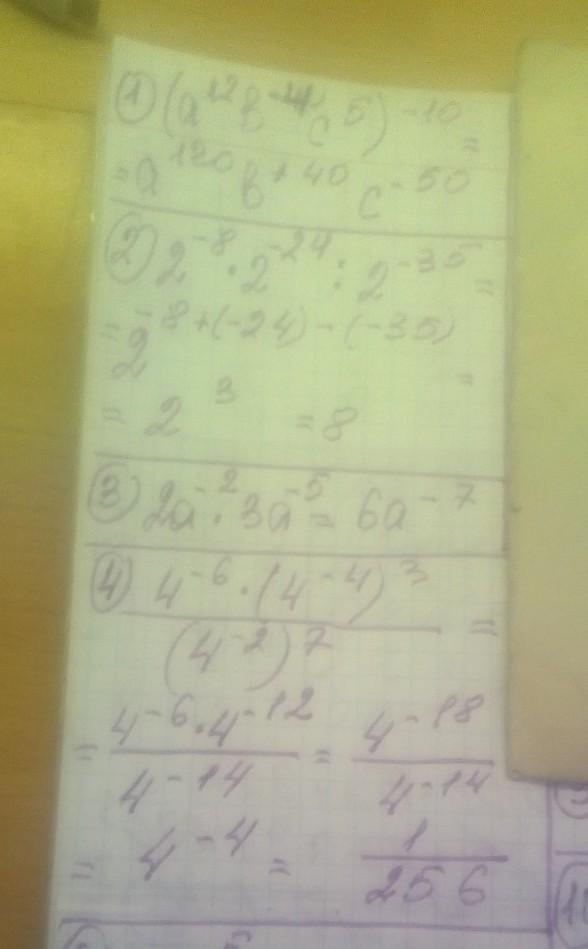 ① (a¹²b⁻⁴c⁵)⁻¹⁰ =
= a¹²⁰ b⁺⁴⁰ c⁻⁵⁰
② 2⁻⁸ · 2⁻²⁴ : 2⁻³⁵ =
= 2⁻⁸⁺⁽⁻²⁴⁾⁻⁽⁻³⁵⁾ =
= 2³ = 8
③ 2a⁻² · 3a⁻⁵ = 6a⁻⁷
④ 4⁻⁶ · (4⁻⁴)³ / (4⁻²)⁷ =
= 4⁻⁶ · 4⁻¹² / 4⁻¹⁴ = 4⁻¹⁸ / 4⁻¹⁴
= 4⁻⁴ = 1 / 256